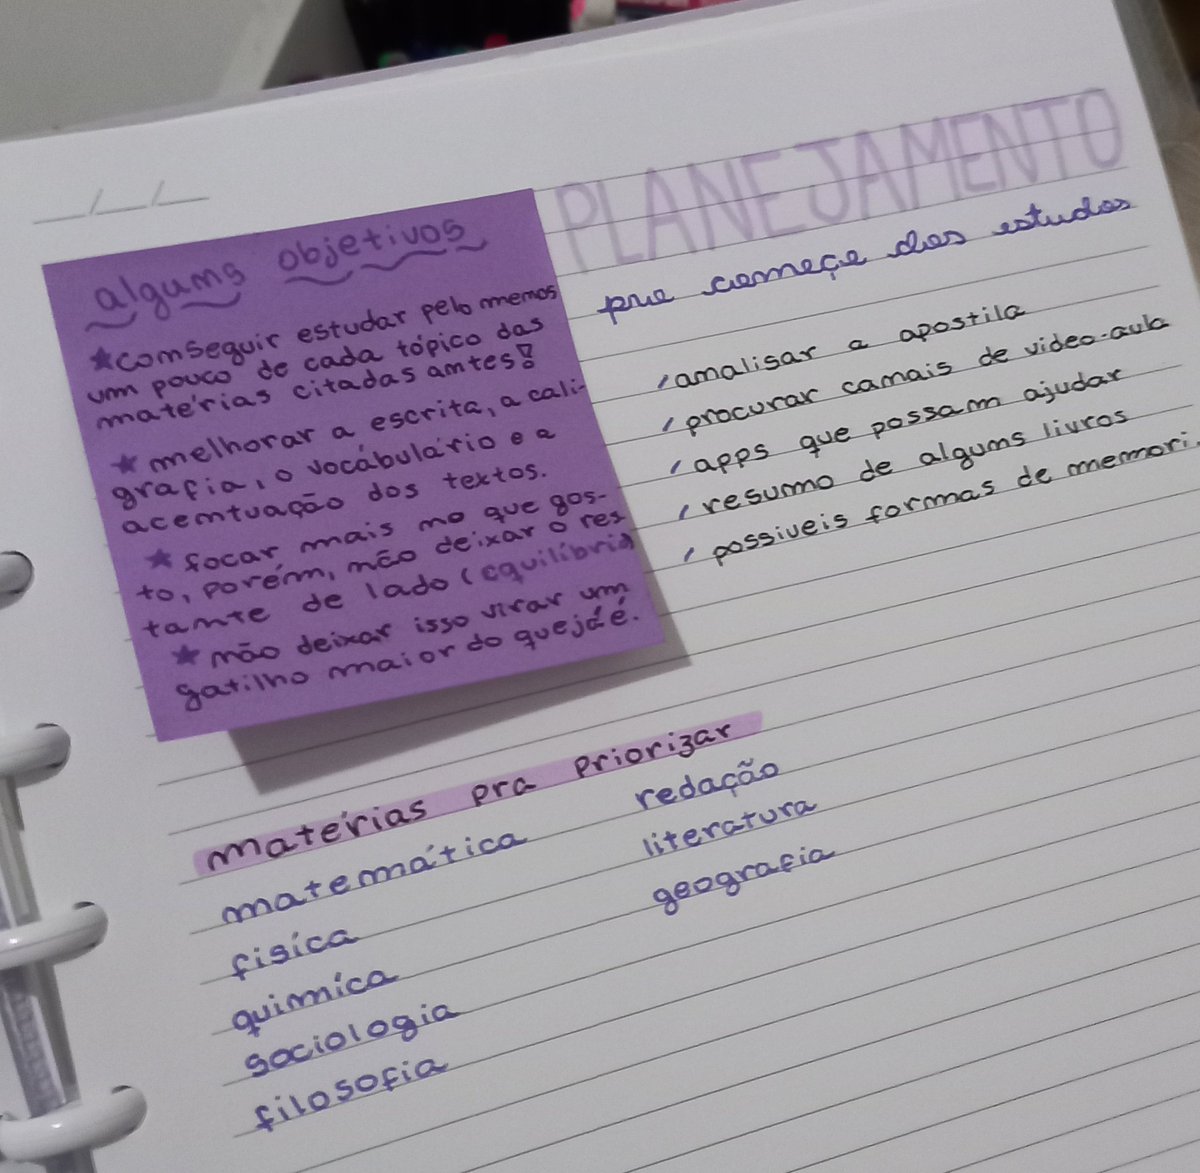 __/__/__
PLANEJAMENTO
pré começo dos estudos
alguns objetivos
★conseguir estudar pelo menos
um pouco de cada tópico das
matérias citadas antes!
★ melhorar a escrita, a cali-
grafia, o vocábulário e a
acentuação dos textos.
★ focar mais no que gos-
to, porém, não deixar o res
tante de lado (equilíbrio
★ não deixar isso virar um
gatilho maior do que já é.
analisar a apostila
procurar canais de video-aula
apps que possam ajudar
resumo de alguns livros
possiveis formas de memori
matérias pra priorizar
matemática
física
química
sociologia
filosofia
redação
literatura
geografia